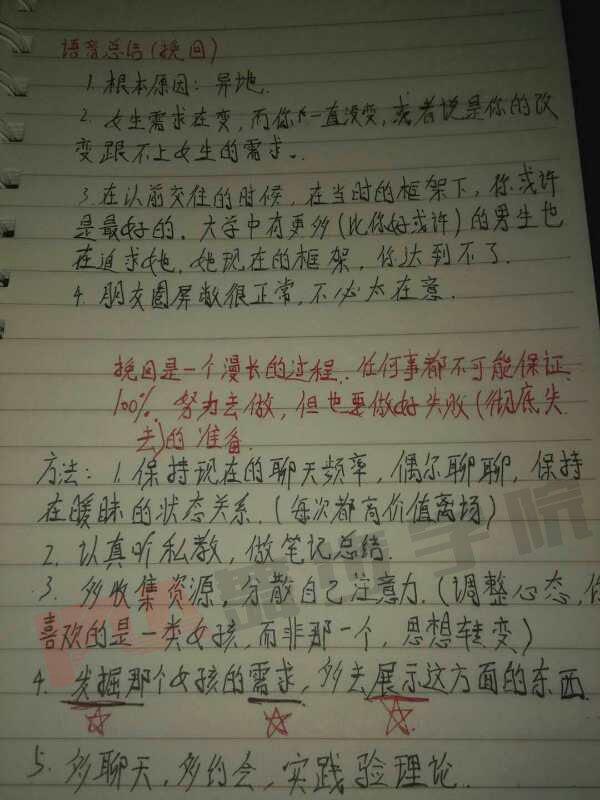 语音总结(挽回)
1. 根本原因: 异地.
2. 女生需求在变, 而你一直没变, 或者说是你的改
变跟不上女生的需求.
3. 在以前交往的时候, 在当时的框架下, 你或许
是最好的. 大学中有更多(比你好或许)的男生也
在追求她, 她现在的框架, 你达到不了.
4. 朋友圈屏蔽很正常, 不必太在意.
挽回是一个漫长的过程. 任何事都不可能保证
100%. 努力去做, 但也要做好失败(彻底失
去)的准备.
方法: 1. 保持现在的聊天频率, 偶尔聊聊, 保持
在暧昧的状态关系. (每次都高价值离场)
2. 认真听私教, 做笔记总结.
3. 多收集资源, 分散自己注意力. (调整心态, 你
喜欢的是一类女孩, 而非那一个, 思想转变)
4. 发掘那个女孩的需求, 多去展示这方面的东西.
5. 多聊天, 多约会, 实践验理论.
学院